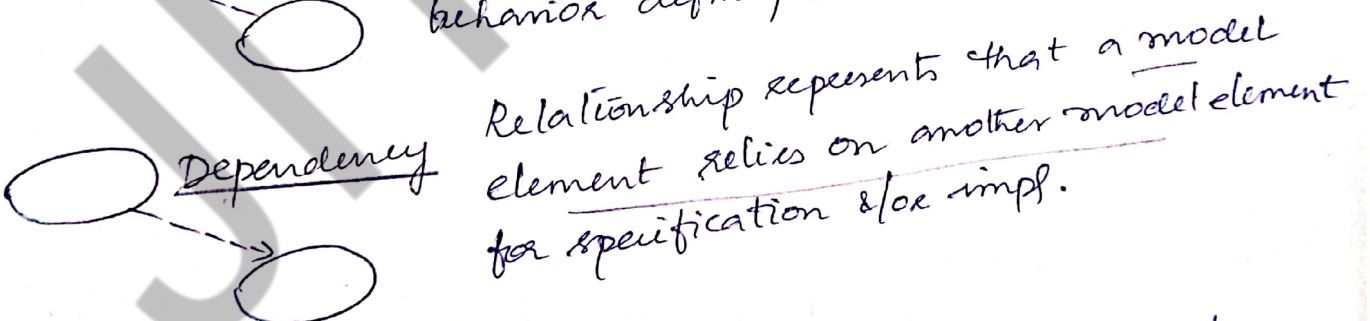 behavior
Relationship represents that a model
Dependency element relies on another model element
for specification &/or impl.